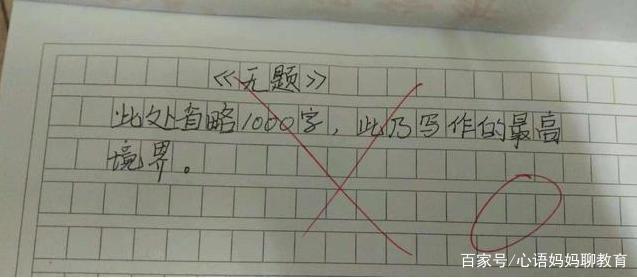 《无题》
此处省略1000字，此乃写作的最高
境界。
百家号/心语妈妈聊教育